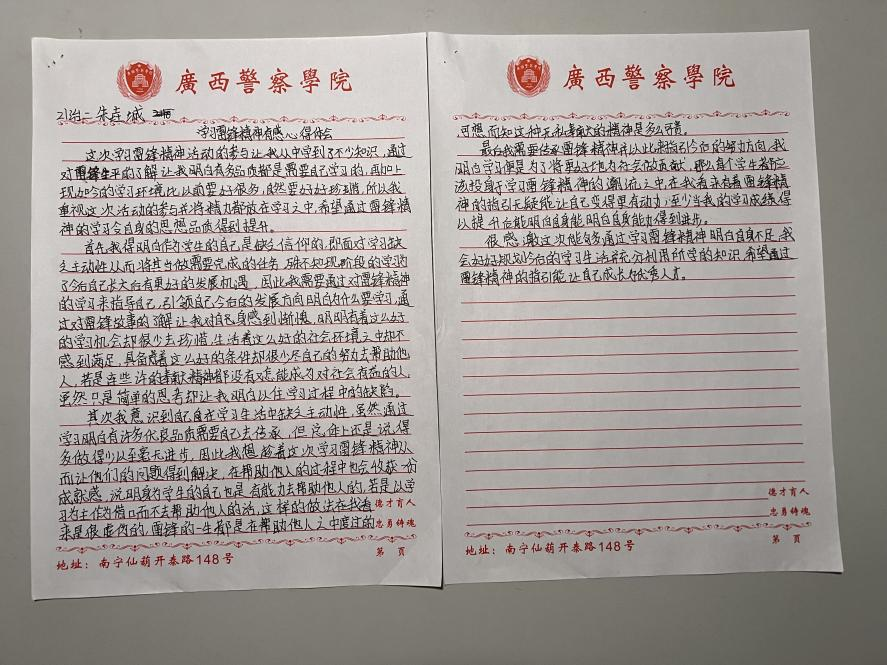 廣西警察學院
21治二 朱垚城
学习雷锋精神有感心得体会
这次学习雷锋精神活动的参与让我从中学到了不少知识，通过
对雷锋生平的了解让我明白有多品质都是需要自己学习的，再加上
现如今的学习环境比以前要好很多，自然要好好珍惜，所以我
重视这次活动的参与并将精力都放在学习之中，希望通过雷锋精
神的学习令自身的思想品质得到提升。
首先我得明白作为学生的自己是缺乏信仰的，即面对学习缺
乏主动性从而将其当做需要完成的任务，殊不知现阶段的学习为
了今后自己长大后有更好的发展机遇，因此我需要通过对雷锋精神
的学习来指导自己，引领自己今后的发展方向明白为什么要学习，通
过对雷锋故事的了解让我对自己身感到惭愧，明明有着这么好
的学习机会却很少去珍惜，生活着这么好的社会环境之中却不
感到满足，具备着这么好的条件却很少尽自己的努力去帮助他
人，若是连些许的奉献精神都没有又怎能成为对社会有益的人，
虽然只是简单的思考却让我明白以往学习过程中的缺陷。
其次我意识到自己自在学习生活中缺乏主动性，虽然通过
学习明白有许多优良品质需要自己去传承，但途上还是说得
多做得少以至毫无进步，因此我想趁着这次学习雷锋精神从
而让他们的问题得到解决，在帮助他人的过程中也会收获一份
成就感，说明身为学生的自己也是有能力去帮助他人的，若是以学
习为主作为借口而不去帮助他人的话，这样的做法在我看
来是很虚伪的，雷锋的一生都是在帮助他人之中度过的
德才育人
忠勇铸魂
第 页
地址：南宁仙葫开泰路148号
廣西警察學院
可想而知这种无私奉献的精神是多么可贵。
最后我需要传承雷锋精神并以此来指己今后的努力方向，我
明白学习便是为了将更好地为社会做贡献，那么每个学生都应
该投身于学习雷锋精神的潮流之中，在我看来有着雷锋精神
的指引无疑能让自己变得更有动力，至少当我的学习成绩得
以提升后能明白自身能明白自身能力得到进步。
很感激这次能够通过学习雷锋精神明白自身不足，我
会好好规划今后的学习生活并充分利用所学的知识，希望通过
雷锋精神的指引能让自己成长为优秀人才。
德才育人
忠勇铸魂
第 页
地址：南宁仙葫开泰路148号